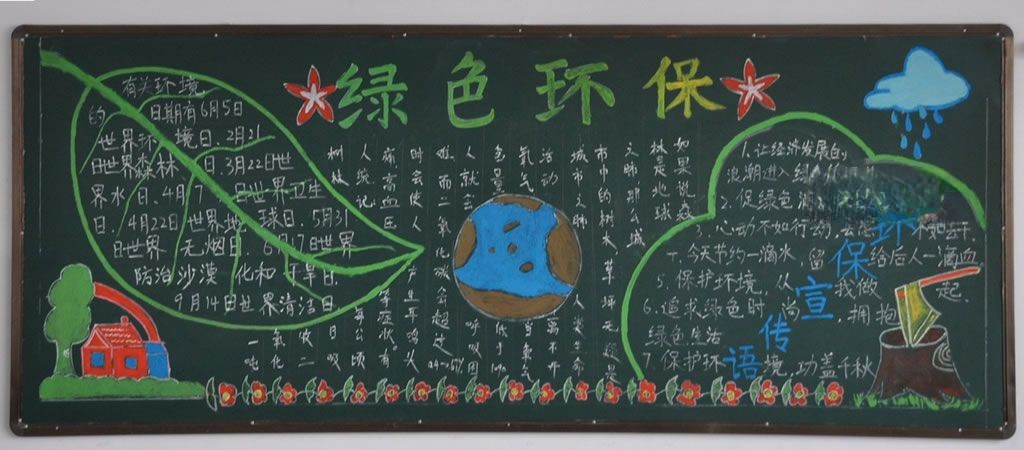 绿色环保
有关环境
的 日期有6月5
世界环 境日 2月21
日世界森林 日.3月22日世
界水日、4月7 日世界卫生
日、4月22日世界地 球日、5月31
日世界 无烟日、6月17日世界
防治沙漠 化和 干旱日、
9月14日世界清洁日
如果说森
林是地球
之肺那么城
市中的树木,草坪无疑是
城市之肺
人类生命
活动
离不开
氧气
当氧气
呼吸困
人就会
难而二氧化碳会超过
时会使人
产生耳鸣头
痛高血压
等症状有
人统说
每公顷
树林
1.让经济发展的
浪潮进入绿
2.促绿色
3.心动不如行动,
今天节约一滴水,留给后人一滴血
5.保护环境,从我做起
6.追求绿色时尚,拥抱
绿色生活
7.保护环境,功盖千秋
环保宣传语